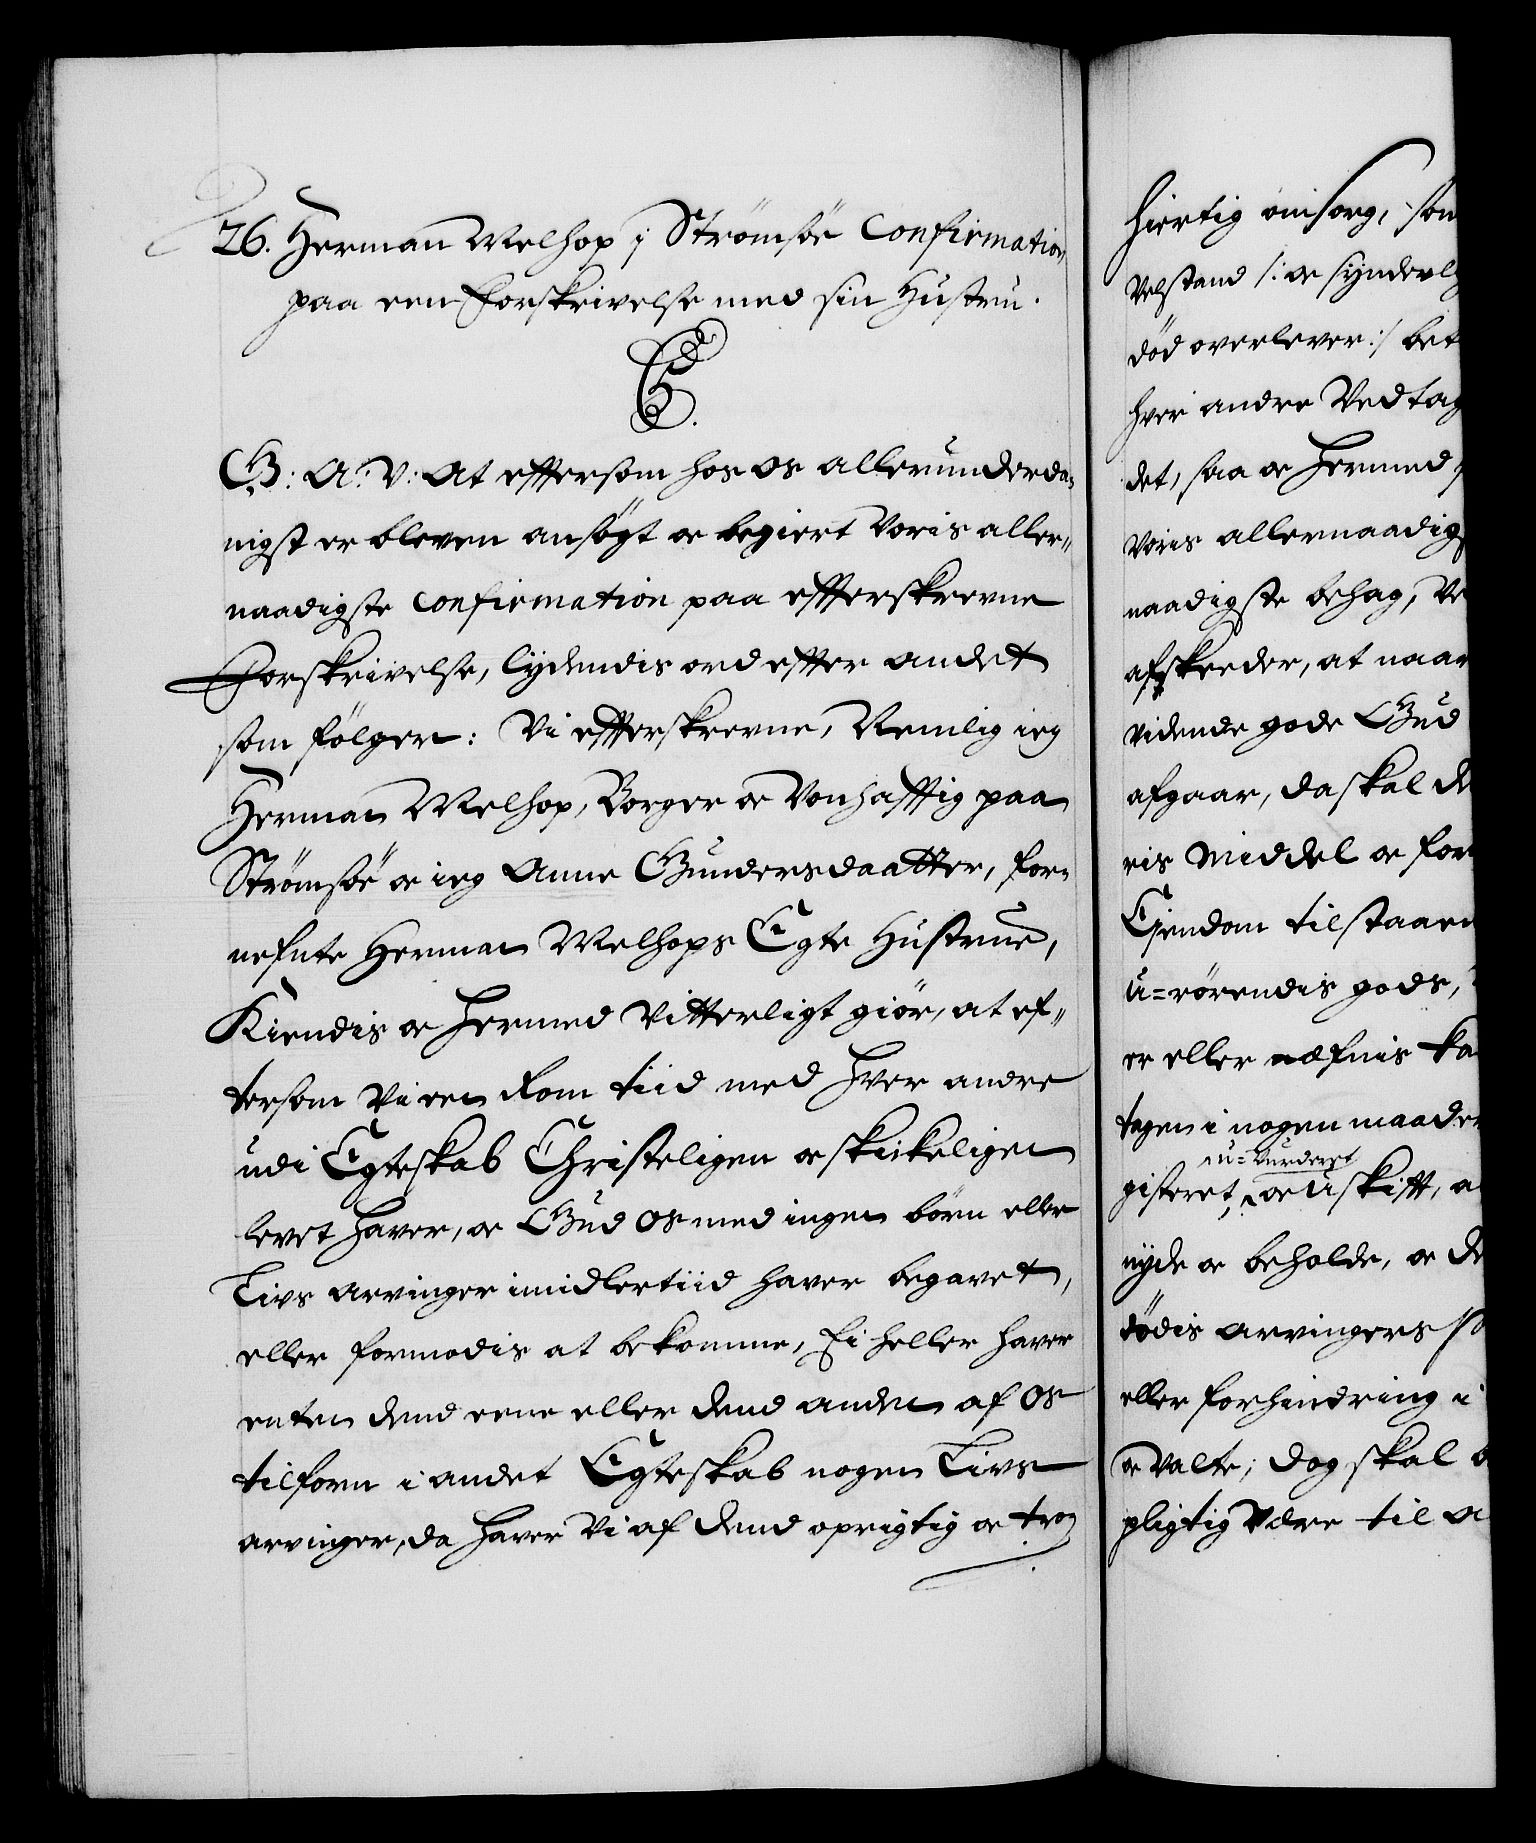 26. Herman Melhop i Strömsöe Confirmation
paa een Forskrivelse med sin Hustru.
G: A: V: At eftersom hos os allerunderda-
nigst er bleven ansögt oc begiert Voris aller-
naadigste Confirmation paa efterskrevne
Forskrivelse, lydendis ord efter andet
som fölger: Vi efterskrevne, Nemlig ieg
Herman Melhop, Borger oc Vonhafftig paa
Strömsöe oc ieg Anne Gundersdaatter, for-
nefnte Herman Melhops Egte Hustrue,
Kiendis oc hermed Vitterligt giör, at ef-
tersom Vi een Rom tiid med hver andre
udi Egteskab Christeligen oc skickeligen
levet haver, oc Gud os med ingen börn eller
Livs arvinger imidlertiid haver begavet,
eller formodis at bekomme, Ei heller haver
enten dend eene eller dend anden af os
tilforn i andet Egteskab nogen Livs
arvinger, da haver Vi af dend oprigtig oc tro
hiertig omsorg, som
Velstand /: oc synderlig
död overlever :/ bet
hver andre Vedtag
det, saa oc hermed
Voris allernaadigs
naadigste behag, Ve
afskeeder, at naar
vidende gode Gud
afgaar, da skal de
ris Middel oc for
Ejendom tilstaaen
u=rörendis gods,
er eller næfnis ka
tagen i nogen maader
u=Vurderet
gisteret, oc Uskifft, a
nyde oc beholde, oc de
dödis arvingers
eller forhindring i
oc Valte; dog skal
pligtig Være til a